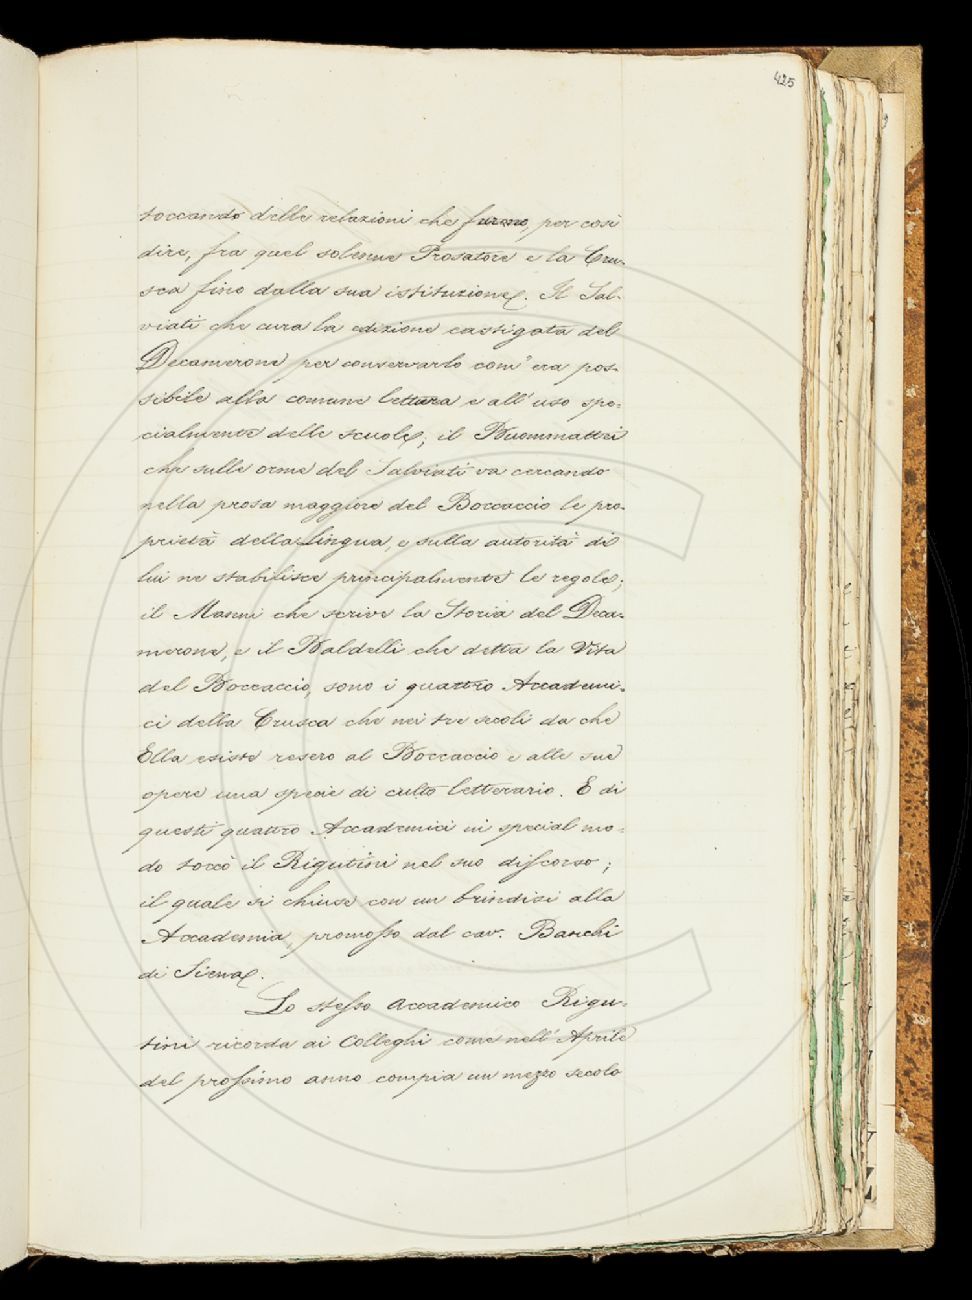 425
toccando delle relazioni che furono, per così
dire, fra quel solenne Prosatore e la Cru-
sca fino dalla sua istituzione. Il Sal-
viati che cura la edizione castigata del
Decamerone per conservarlo com'era pos-
sibile alla comune lettura e all'uso spe-
cialmente delle scuole; il Buommattei
che sulle orme del Salviati va cercando
nella prosa maggiore del Boccaccio le pro-
prietà della Lingua, e sulla autorità di
lui ne stabilisce principalmente le regole;
il Manni che scrive la Storia del Deca-
merone, e il Baldelli che detta la Vita
del Boccaccio, sono i quattro Accademi-
ci della Crusca che nei tre secoli da che
Ella esiste resero al Boccaccio e alle sue
opere una specie di culto letterario. E di
questi quattro Accademici in special mo-
do toccò il Rigutini nel suo discorso;
il quale si chiuse con un brindisi alla
Accademia, promosso dal cav. Banchi
di Siena.
Lo stesso Accademico Rigu-
tini ricorda ai Colleghi come nell'Aprile
del prossimo anno compia un mezzo secolo